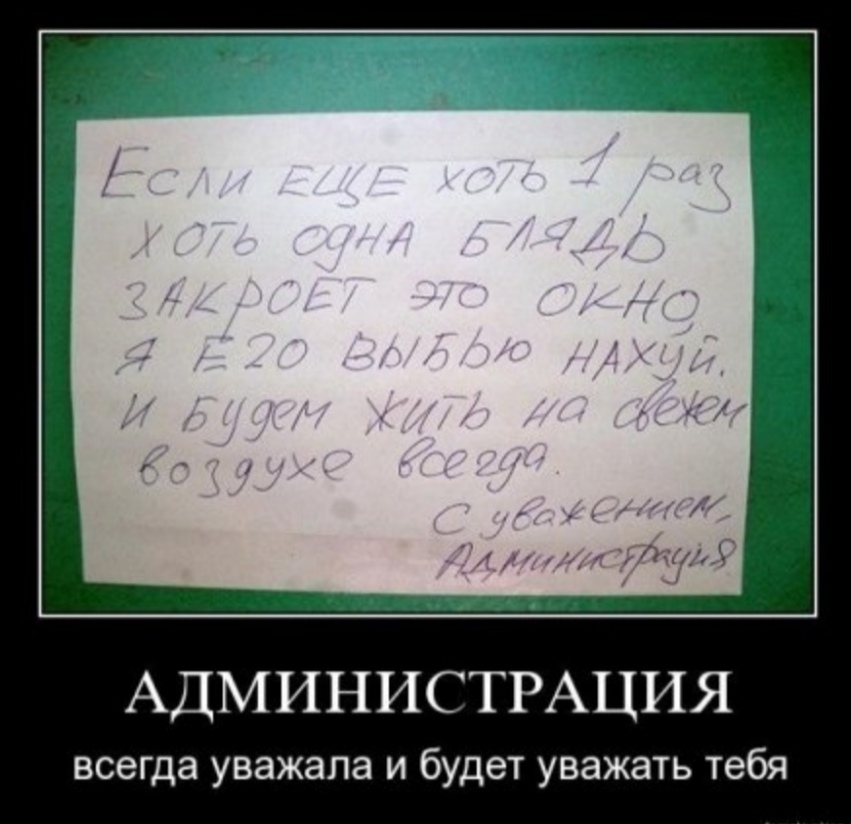 Если ЕЩЕ хоть 1 раз
хоть одНА БЛЯДЬ
ЗАКРОЕТ это ОКНО,
Я ЕГО ВЫБЬЮ НАХУЙ.
И Будем Жить на свежем
воздухе всегда.
С уважением,
Администрация
АДМИНИСТРАЦИЯ
всегда уважала и будет уважать тебя